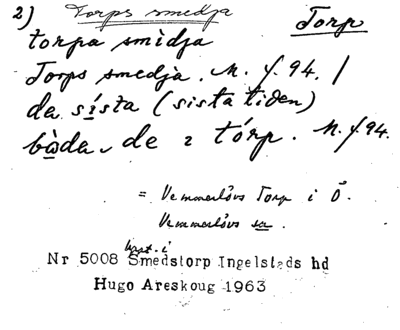 2) Torps smedja
Torp
torpa smìdja
Torps smedja. M. f. 94. /
da sísta (sista tiden)
bàda de i tórp. M. f. 94.
= Vemmerlövs Torp i Ö.
Vemmerlövs sn.
Nr 5008 Smedstorp Ingelstads hd
Hugo Areskoug 1963